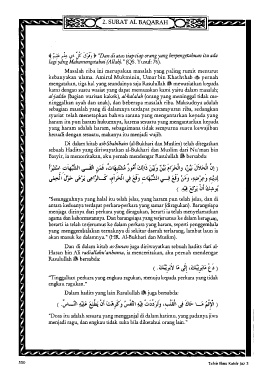 2. SURAT AL BAQARAH
﴿ وَفَوْقَ كُلِّ ذِي عِلْمٍ عَلِيمٌ ﴾ "Dan di atas tiap-tiap orang yang berpengetahuan itu ada
lagi yang Mahamengetahui (Allah)." (QS. Yusuf: 76).
Masalah riba ini merupakan masalah yang paling rumit menurut
kebanyakan ulama. Amirul Mukminin, Umar bin Khaththab pernah
mengatakan, tiga hal yang seandainya saja Rasulullah mewasiatkan kepada
kami dengan suatu wasiat yang dapat memuaskan kami yaitu dalam masalah;
al-jadd (bagian warisan kakek), al-kalalah (orang yang meninggal tidak me-
ninggalkan ayah dan anak), dan beberapa masalah riba. Maksudnya adalah
sebagian masalah yang di dalamnya terdapat percampuran riba, sedangkan
syariat telah menetapkan bahwa sarana yang mengantarkan kepada yang
haram itu pun haram hukumnya, karena sesuatu yang mengantarkan kepada
yang haram adalah haram, sebagaimana tidak sempurna suatu kewajiban
kecuali dengan sesuatu, makanya itu menjadi wajib.
Di dalam kitab ash-Shahihain (al-Bukhari dan Muslim) telah ditegaskan
sebuah Hadits yang diriwayatkan al-Bukhari dan Muslim dari Nu'man bin
Basyir, ia menceritakan, aku pernah mendengar Rasulullah bersabda:
"Sesungguhnya yang halal itu telah jelas, yang haram pun telah jelas, dan di
antara keduanya terdapat perkara-perkara yang samar (diragukan). Barangsiapa
menjaga dirinya dari perkara yang diragukan, berarti ia telah menyelamatkan
agama dan kehormatannya. Dan barangsiapa yang terjerumus ke dalam keraguan,
berarti ia telah terjerumus ke dalam perkara yang haram, seperti penggembala
yang menggembalakan ternaknya di sekitar daerah terlarang, lambat laun ia
akan masuk ke dalamnya." (HR. Al-Bukhari dan Muslim).
Dan di dalam kitab as-Sunan juga diriwayatkan sebuah hadits dari al-
Hasan bin Ali, ia menceritakan, aku pernah mendengar
Rasulullah bersabda:
( دَعْ مَا يَرِيبُكَ، إِلَى مَا لاَ يَرِيبُكَ. )
"Tinggalkan perkara yang engkau ragukan, menuju kepada perkara yang tidak
engkau ragukan."
Dalam hadits yang lain Rasulullah juga bersabda:
"Dosa itu adalah sesuatu yang mengganjal di dalam hatimu, yang padanya jiwa
menjadi ragu, dan engkau tidak suka bila diketahui orang lain."
550
Tafsir Ibnu Katsir Juz 3